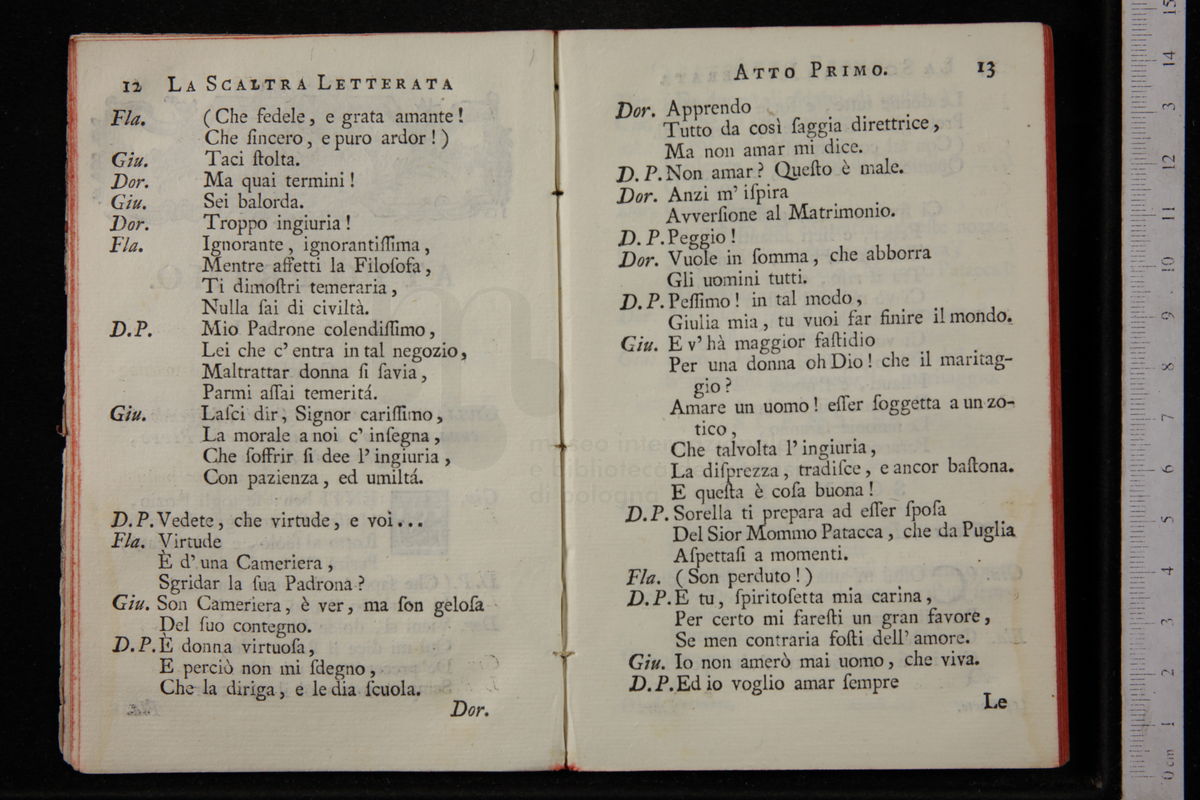 12 LA SCALTRA LETTERATA
Fla. (Che fedele, e grata amante!
Che ſincero, e puro ardor!)
Giu. Taci ſtolta.
Dor. Ma quai termini!
Giu. Sei balorda.
Dor. Troppo ingiuria!
Fla. Ignorante, ignorantiſſima,
Mentre affetti la Filoſofa,
Ti dimoſtri temeraria,
Nulla ſai di civiltà.
D.P. Mio Padrone colendiſſimo,
Lei che c' entra in tal negozio,
Maltrattar donna ſi ſavia,
Parmi aſſai temeritá.
Giu. Laſci dir, Signor cariſſimo,
La morale a noi c' inſegna,
Che ſoffrir ſi dee l' ingiuria,
Con pazienza, ed umiltá.
D.P. Vedete, che virtude, e voi...
Fla. Virtude
È d' una Cameriera,
Sgridar la ſua Padrona?
Giu. Son Cameriera, è ver, ma ſon geloſa
Del ſuo contegno.
D.P. È donna virtuoſa,
E perciò non mi ſdegno,
Che la diriga, e le dia ſcuola.
Dor.
ATTO PRIMO. 13
Dor. Apprendo
Tutto da così ſaggia direttrice,
Ma non amar mi dice.
D.P. Non amar? Queſto è male.
Dor. Anzi m' iſpira
Avverſione al Matrimonio.
D.P. Peggio!
Dor. Vuole in ſomma, che abborra
Gli uomini tutti.
D.P. Peſſimo! in tal modo,
Giulia mia, tu vuoi far finire il mondo.
Giu. E v' hà maggior faſtidio
Per una donna oh Dio! che il maritag-
gio?
Amare un uomo! eſſer ſoggetta a un zo-
tico,
Che talvolta l' ingiuria,
La diſprezza, tradiſce, e ancor baſtona.
E queſta è coſa buona!
D.P. Sorella ti prepara ad eſſer ſpoſa
Del Sior Mommo Patacca, che da Puglia
Aſpettaſi a momenti.
Fla. (Son perduto!)
D.P. E tu, ſpiritoſetta mia carina,
Per certo mi fareſti un gran favore,
Se men contraria foſti dell' amore.
Giu. Io non amerò mai uomo, che viva.
D.P. Ed io voglio amar ſempre
Le
museo inter
e bibliotec
di bologna
0 cm 1 2 3 4 5 6 7 8 9 10 11 12 13 14 15